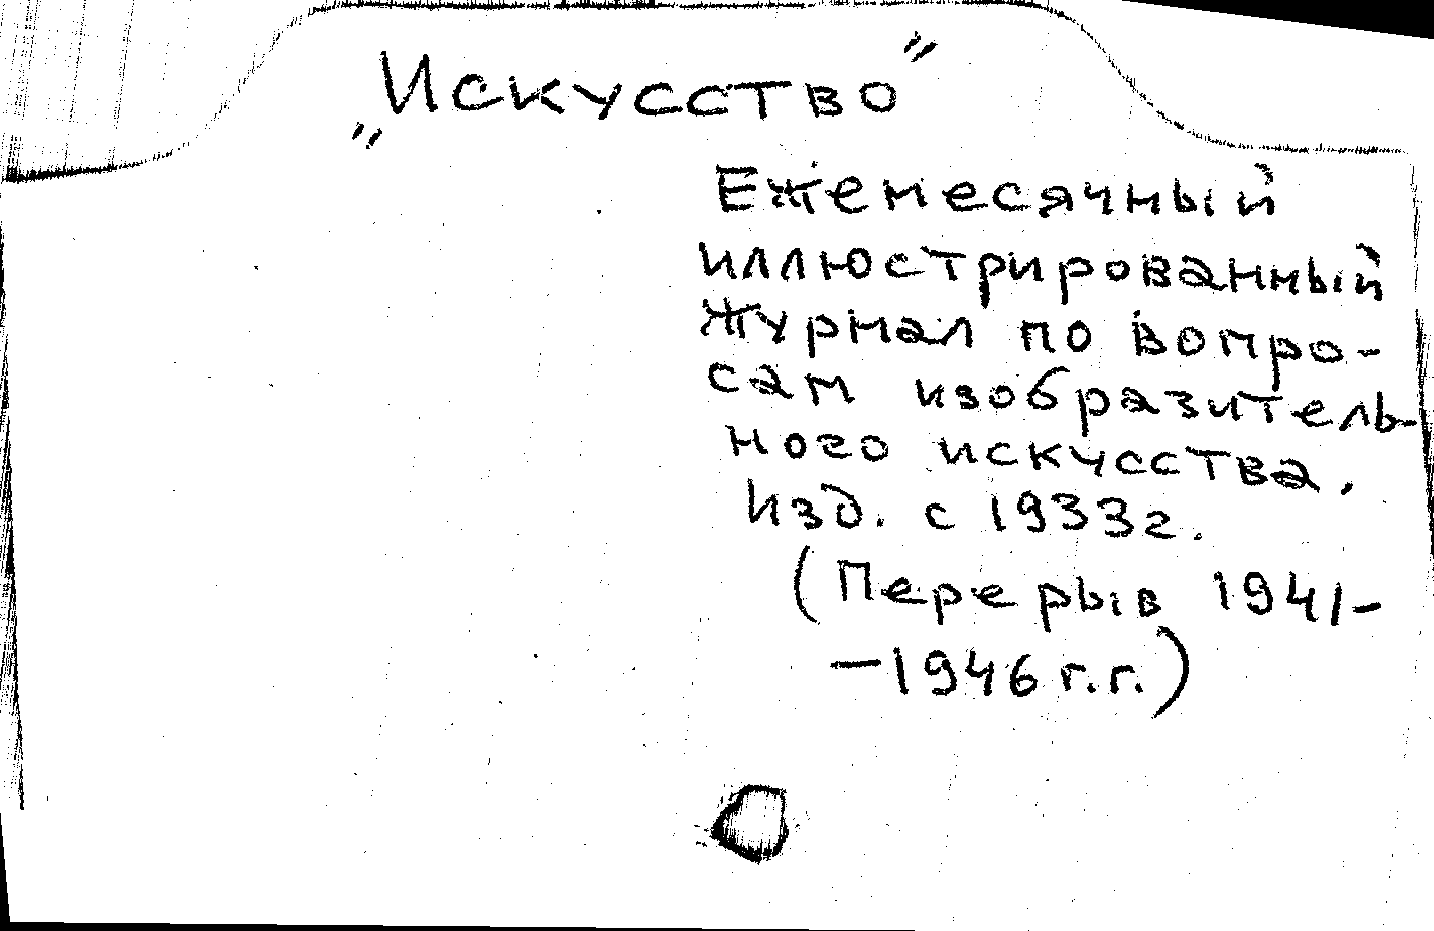 „Искусство”
Ежемесячный
иллюстрированный
журнал по вопро-
сам изобразитель-
ного искусства.
Изд. с 1933г.
(Перерыв 1941-
—1946 г.г.)